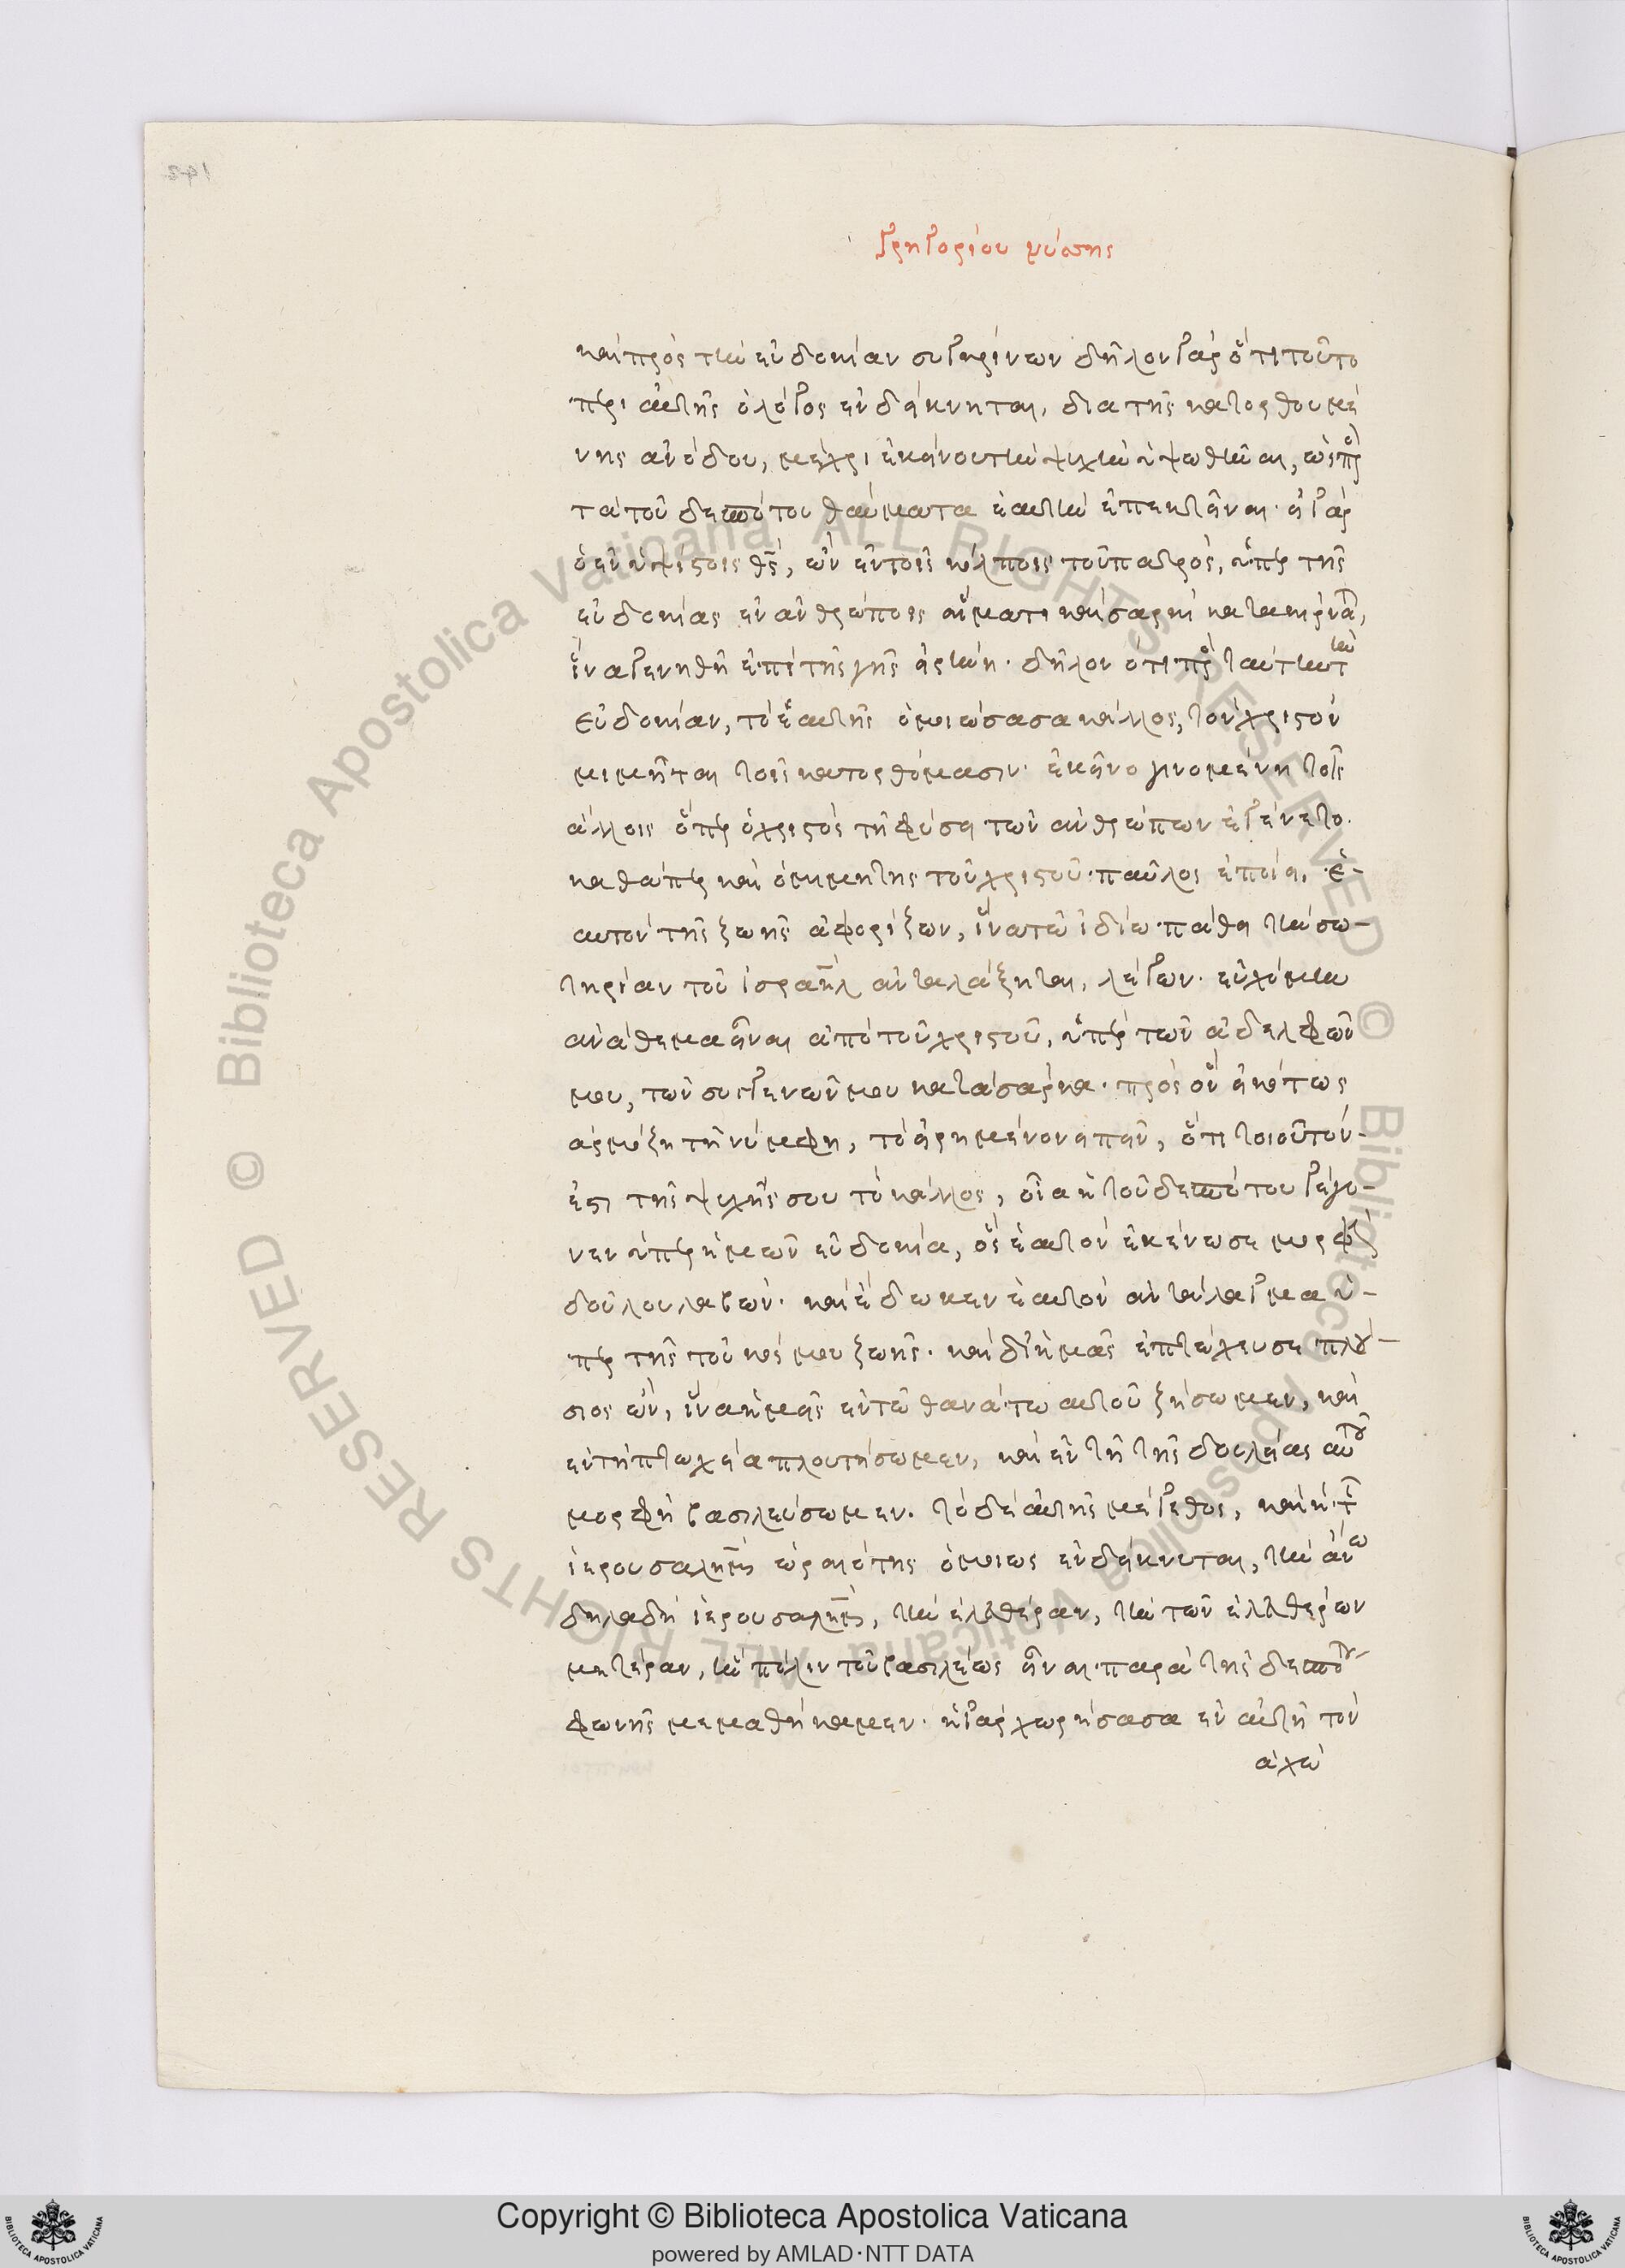 γρηγορίου νύσσης
καὶ πρὸς τὴν εὐδοκίαν συγκρίνων δῆλον γὰρ ὅτι τοῦτο
περὶ αὐτῆς ὁ λόγος ἐνδείκνυται, διὰ τῆς κατορθουμέ
νης ἀνόδου, μέχρι ἐκείνου τὴν ψυχὴν ὑψωθῆναι, ὡς πρὸς
τὰ τοῦ δεσπότου θαύματα ἑαυτὴν ἐπεκτεῖναι. εἰ γὰρ
ὁ ἐν ὑψίστοις θς, ὢν ἐν τοῖς κόλποις τοῦ πατρὸς, ὑπὲρ τῆς
εὐδοκίας ἐν ἀνθρώποις αἵματι καὶ σαρκὶ κατακιρνᾶται,
ἵνα γενηθῇ ἐπὶ τῆς γῆς εἰρήνη. δῆλον ὅτι πρὸς ταύτην τὴν
εὐδοκίαν, τὸ ἑαυτῆς ὁμοιώσασα κάλλος, τὸν χριστὸν
μιμεῖται τοῖς κατορθώμασιν. ἐκεῖνο γινομένη τοῖς
ἄλλοις ὅπερ ὁ χριστὸς τῇ φύσει τῶν ἀνθρώπων ἐγένετο.
καθάπερ καὶ ὁ μιμητὴς τοῦ χριστοῦ παῦλος ἐποίει, ἑ-
αυτὸν τῆς ζωῆς ἀφορίζων, ἵνα τῷ ἰδίῳ πάθει τὴν σω-
τηρίαν τοῦ ἰσραὴλ ἀνταλάξηται, λέγων. εὐχόμην
ἀνάθεμα εἶναι ἀπὸ τοῦ χριστοῦ, ὑπὲρ τῶν ἀδελφῶν
μου, τῶν συγγενῶν μου κατὰ σάρκα. πρὸς ὃν εἰκότως
ἁρμόζει τῇ νύμφῃ, τὸ εἰρημένον εἰπεῖν, ὅτι τοιοῦτόν
ἐστι τῆς ψυχῆς σου τὸ κάλλος, οἵα ἡ τοῦ δεσπότου γέγο-
νεν ὑπὲρ ἡμῶν εὐδοκία, ὃς ἑαυτὸν ἐκένωσε μορφὴν
δούλου λαβών. καὶ ἔδωκεν ἑαυτὸν ἀντάλαγμα ὑ-
πὲρ τῆς τοῦ κόσμου ζωῆς. καὶ δι' ἡμᾶς ἐπτώχευσε πλού-
σιος ὢν, ἵνα ἡμεῖς ἐν τῷ θανάτῳ αὐτοῦ ζήσωμεν, καὶ
ἐν τῇ πτωχείᾳ πλουτήσωμεν, καὶ ἐν τῇ τῆς δουλείας αὐτοῦ
μορφῇ βασιλεύσωμεν. τὸ δὲ αὐτῆς μέγεθος, καὶ ἡ τῆς
ἱερουσαλὴμ ὡραιότης ὁμοίως ἐνδείκνυται, τὴν ἄνω
δηλαδὴ ἱερουσαλὴμ, τὴν ἐλευθέραν, τὴν τῶν ἐλευθέρων
μητέραν, ἣν πόλιν τοῦ βασιλέως εἶναι παρὰ τῆς δεσποτου
φωνῆς μεμαθήκαμεν. ἡ γὰρ χωρήσασα ἐν αὐτῇ τὸν
ἀχώ
Copyright © Biblioteca Apostolica Vaticana
powered by AMLAD·NTT DATA